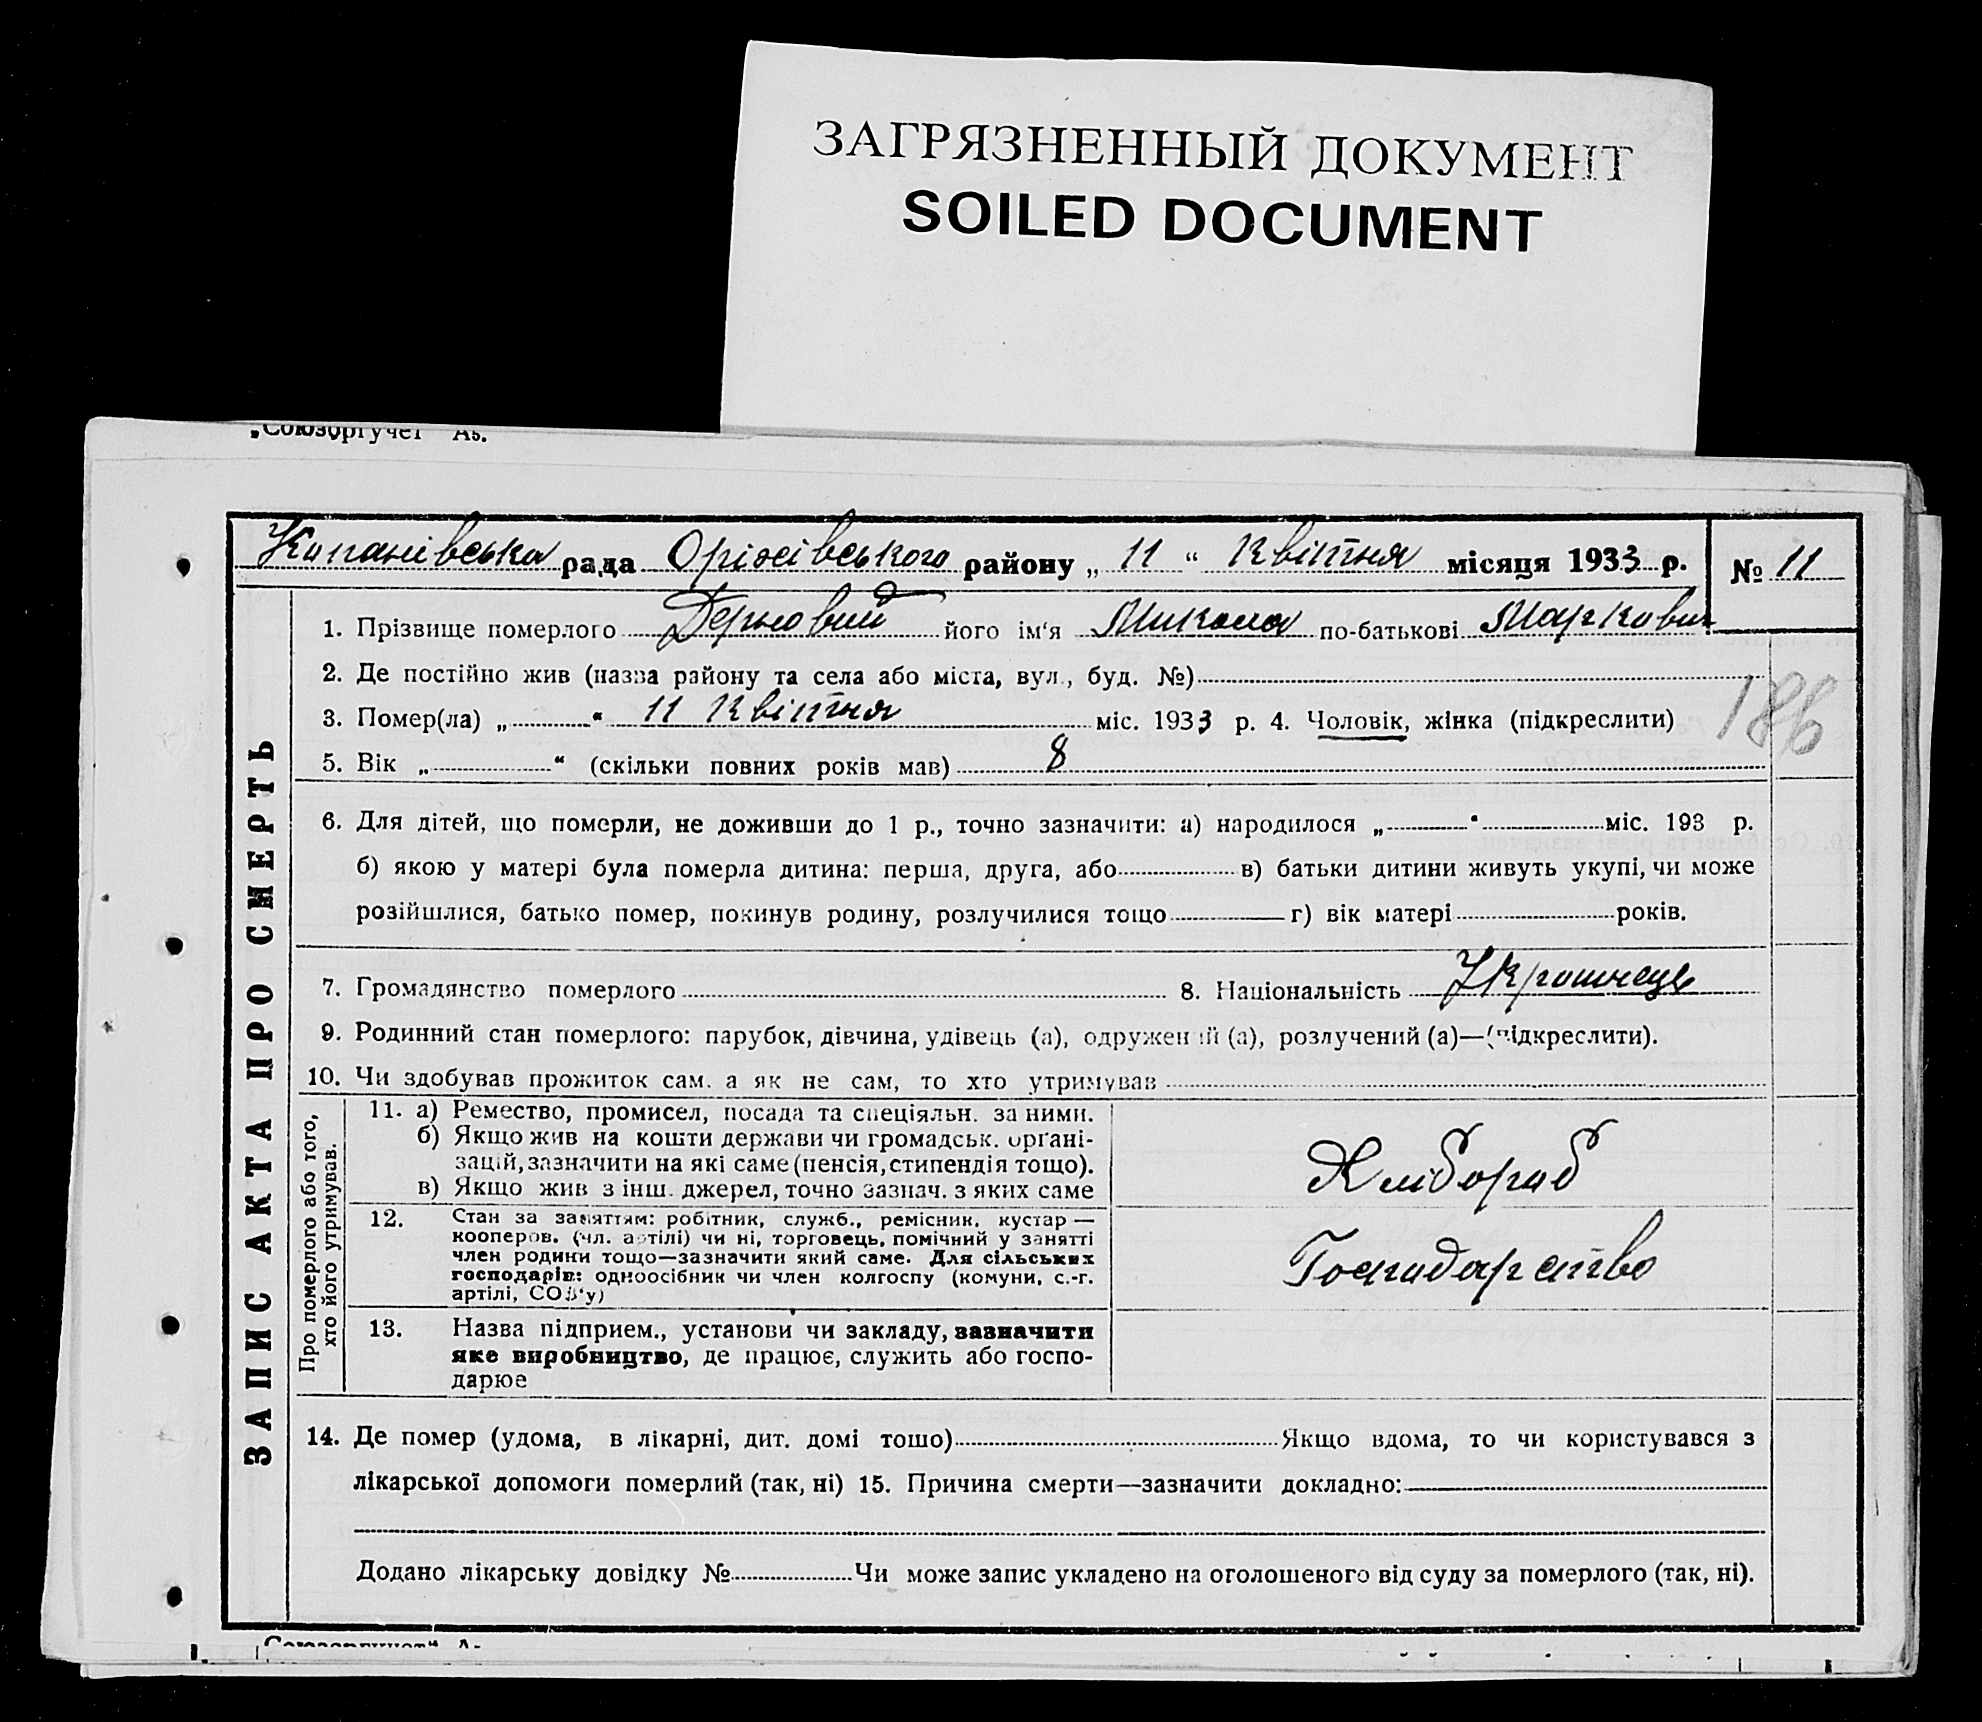 ЗАГРЯЗНЕННЫЙ ДОКУМЕНТ
SOILED DOCUMENT
„Союзоргучет"
Копанівська рада Оріхівського району „ 11 “ Квітня місяця 1933 р. № 11
ЗАПИС АКТА ПРО СМЕРТЬ
1. Прізвище померлого Дерновий його ім'я Микола по-батькові Маркович
2. Де постійно жив (назва району та села або міста, вул., буд. №)
186
3. Помер(ла) „ “ 11 Квітня міс. 1933 р. 4. Чоловік, жінка (підкреслити)
5. Вік „ “ (скільки повних років мав) 8
6. Для дітей, що померли, не доживши до 1 р., точно зазначити: а) народилося „ “ міс. 193 р.
б) якою у матері була померла дитина: перша, друга, або в) батьки дитини живуть укупі, чи може
розійшлися, батько помер, покинув родину, розлучилися тощо г) вік матері років.
7. Громадянство померлого 8. Національність Українець
9. Родинний стан померлого: парубок, дівчина, удівець (а), одружений (а), розлучений (а)—(підкреслити).
10. Чи здобував прожиток сам, а як не сам, то хто утримував
Про померлого або того,
хто його утримував.
11. а) Ремество, промисел, посада та спеціяльн. за ними.
б) Якщо жив на кошти держави чи громадськ. органі-
зацій, зазначити на які саме (пенсія, стипендія тощо).
в) Якщо жив з інш. джерел, точно зазнач. з яких саме
Хлібороб
12. Стан за заняттям: робітник, служб., ремісник, кустар —
кооперов. (чл. артілі) чи ні, торговець, помічний у занятті
член родини тощо—зазначити який саме. Для сільських
господарів: одноосібник чи член колгоспу (комуни, с.-г.
артілі, СОЗ'у)
Господарство
13. Назва підприєм., установи чи закладу, зазначити
яке виробництво, де працює, служить або госпо-
дарює
14. Де помер (удома, в лікарні, дит. домі тощо) Якщо вдома, то чи користувався з
лікарської допомоги померлий (так, ні) 15. Причина смерти—зазначити докладно:
Додано лікарську довідку № Чи може запис укладено на оголошеного від суду за померлого (так, ні).